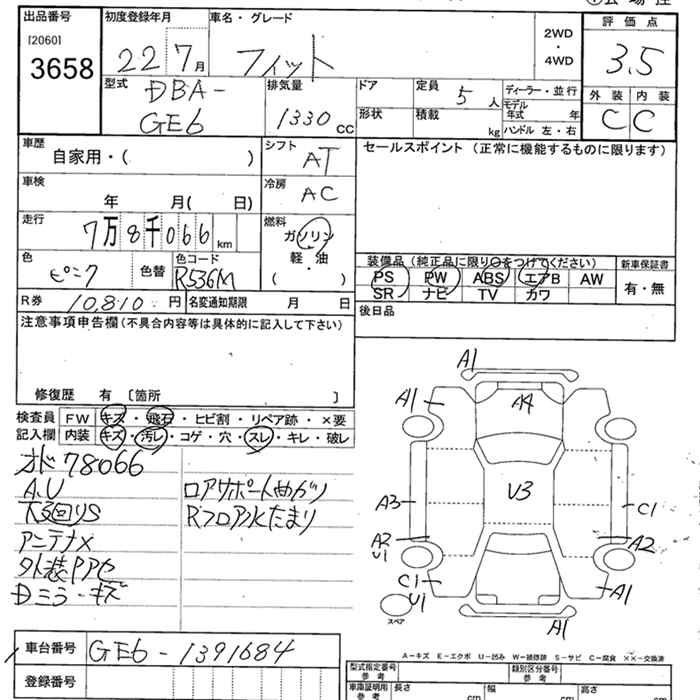 出品番号
[2060]
3658
初度登録年月
22 7月
車名・グレード
フィット
2WD
・
4WD
評価点
3.5
型式
DBA-
GE6
排気量
1330 CC
ドア
形状
定員
5 人
積載
kg
ディーラー・並行
モデル年式 年
ハンドル 左・右
外装 内装
C C
車歴
自家用・( )
シフト
AT
セールスポイント (正常に機能するものに限ります)
車検
年 月( 日)
冷房
AC
走行
7万8千066 km
燃料
ガソリン
軽・油
・
( )
色
ピンク
色替
色コード
R536M
装備品 (純正品に限り○をつけてください)
PS PW ABS エアB AW
SR ナビ TV カワ
新車保証書
有・無
R券 10,810 円
名変通知期限 月 日
後日品
注意事項申告欄(不具合内容等は具体的に記入して下さい)
修復歴 有 〔箇所 〕
検査員
記入欄
FW キズ・飛石・ヒビ割・リペア跡・×要
内装 キズ・汚レ・コゲ・穴・スレ・キレ・破レ
オド78066
A,U
下回りS
アンテナX
外装Pアセ
Dミラーキズ
ロアサポートめガリ
Rフロア水たまり
A1
A1
A4
A3
V3
C1
A2
U1
A2
C1
U1
A1
A1
スペア
A-キズ E-エクボ U-凹み W-補修跡 S-サビ C-腐食 ××-交換済
車台番号 GE6-1391684
登録番号
型式指定番号
参考
類別区分番号
参考
車庫証明用
参考
長さ cm
幅 cm
高さ cm